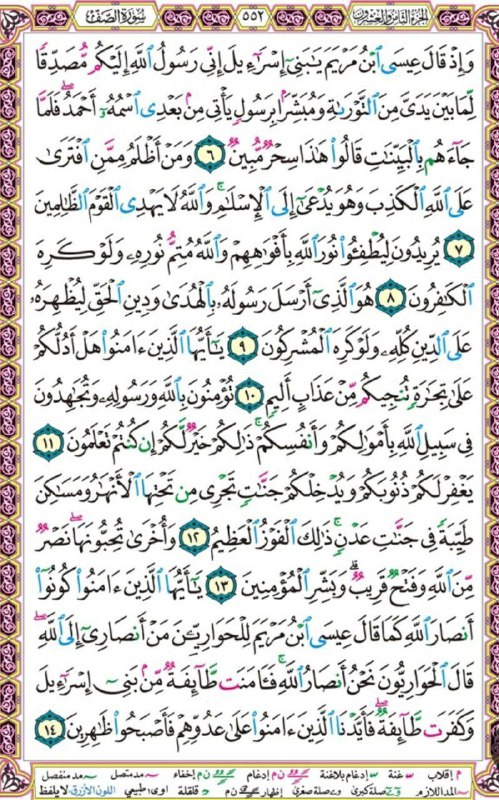 الجزء الثامن والعشرون ٥٥٢ سورة الصف
وَإِذْ قَالَ عِيسَى ٱبْنُ مَرْيَمَ يَٰبَنِىٓ إِسْرَٰٓءِيلَ إِنِّى رَسُولُ ٱللَّهِ إِلَيْكُم مُّصَدِّقًا
لِّمَا بَيْنَ يَدَىَّ مِنَ ٱلتَّوْرَىٰةِ وَمُبَشِّرًۢا بِرَسُولٍ يَأْتِى مِنۢ بَعْدِى ٱسْمُهُۥٓ أَحْمَدُ ۖ فَلَمَّا
جَآءَهُم بِٱلْبَيِّنَٰتِ قَالُوا۟ هَٰذَا سِحْرٌ مُّبِينٌ ٦ وَمَنْ أَظْلَمُ مِمَّنِ ٱفْتَرَىٰ
عَلَى ٱللَّهِ ٱلْكَذِبَ وَهُوَ يُدْعَىٰٓ إِلَى ٱلْإِسْلَٰمِ ۚ وَٱللَّهُ لَا يَهْدِى ٱلْقَوْمَ ٱلظَّٰلِمِينَ
٧ يُرِيدُونَ لِيُطْفِـُٔوا۟ نُورَ ٱللَّهِ بِأَفْوَٰهِهِمْ وَٱللَّهُ مُتِمُّ نُورِهِۦ وَلَوْ كَرِهَ
ٱلْكَٰفِرُونَ ٨ هُوَ ٱلَّذِىٓ أَرْسَلَ رَسُولَهُۥ بِٱلْهُدَىٰ وَدِينِ ٱلْحَقِّ لِيُظْهِرَهُۥ
عَلَى ٱلدِّينِ كُلِّهِۦ وَلَوْ كَرِهَ ٱلْمُشْرِكُونَ ٩ يَٰٓأَيُّهَا ٱلَّذِينَ ءَامَنُوا۟ هَلْ أَدُلُّكُمْ
عَلَىٰ تِجَٰرَةٍ تُنجِيكُم مِّنْ عَذَابٍ أَلِيمٍ ١٠ تُؤْمِنُونَ بِٱللَّهِ وَرَسُولِهِۦ وَتُجَٰهِدُونَ
فِى سَبِيلِ ٱللَّهِ بِأَمْوَٰلِكُمْ وَأَنفُسِكُمْ ۚ ذَٰلِكُمْ خَيْرٌ لَّكُمْ إِن كُنتُمْ تَعْلَمُونَ ١١
يَغْفِرْ لَكُمْ ذُنُوبَكُمْ وَيُدْخِلْكُمْ جَنَّٰتٍ تَجْرِى مِن تَحْتِهَا ٱلْأَنْهَٰرُ وَمَسَٰكِنَ
طَيِّبَةً فِى جَنَّٰتِ عَدْنٍ ۚ ذَٰلِكَ ٱلْفَوْزُ ٱلْعَظِيمُ ١٢ وَأُخْرَىٰ تُحِبُّونَهَا ۖ نَصْرٌ
مِّنَ ٱللَّهِ وَفَتْحٌ قَرِيبٌ ۗ وَبَشِّرِ ٱلْمُؤْمِنِينَ ١٣ يَٰٓأَيُّهَا ٱلَّذِينَ ءَامَنُوا۟ كُونُوٓا۟
أَنصَارَ ٱللَّهِ كَمَا قَالَ عِيسَى ٱبْنُ مَرْيَمَ لِلْحَوَارِيِّـۧنَ مَنْ أَنصَارِىٓ إِلَى ٱللَّهِ ۖ
قَالَ ٱلْحَوَارِيُّونَ نَحْنُ أَنصَارُ ٱللَّهِ ۖ فَـَٔامَنَت طَّآئِفَةٌ مِّنۢ بَنِىٓ إِسْرَٰٓءِيلَ
وَكَفَرَت طَّآئِفَةٌ ۖ فَأَيَّدْنَا ٱلَّذِينَ ءَامَنُوا۟ عَلَىٰ عَدُوِّهِمْ فَأَصْبَحُوا۟ ظَٰهِرِينَ ١٤
م إقلاب غنة إدغام بلاغنة ن م إدغام ن م إخفاء مد متصل مد منفصل
المد اللازم صلة كبرى صلة صغرى إظهار ن م قلقلة اوى طبيعي اللون الأزرق لا يلفظ